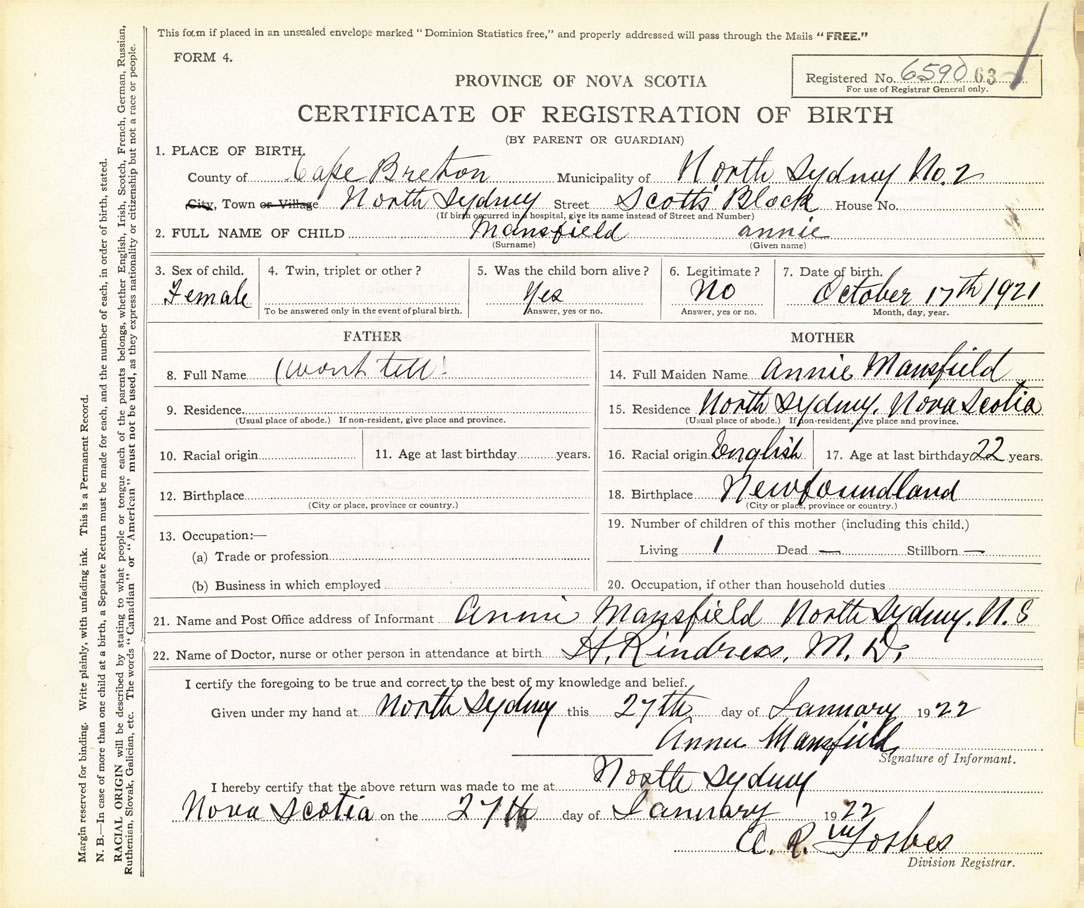 This form if placed in an unsealed envelope marked "Dominion Statistics free," and properly addressed will pass through the Mails "FREE."
FORM 4.
Registered No. 6590 63
For use of Registrar General only.
PROVINCE OF NOVA SCOTIA
CERTIFICATE OF REGISTRATION OF BIRTH
(BY PARENT OR GUARDIAN)
1. PLACE OF BIRTH.
County of Cape Breton Municipality of North Sydney No. 2
City, Town or Village North Sydney Street Scotts Block House No.
(If birth occurred in a hospital, give its name instead of Street and Number)
2. FULL NAME OF CHILD Mansfield annie
(Surname) (Given name)
3. Sex of child. 4. Twin, triplet or other? 5. Was the child born alive? 6. Legitimate? 7. Date of birth.
Female Yes No October 17th 1921
To be answered only in the event of plural birth. Answer, yes or no. Answer, yes or no. Month, day, year.
FATHER
8. Full Name (wont tell)
9. Residence
(Usual place of abode.) If non-resident, give place and province.
10. Racial origin 11. Age at last birthday years.
12. Birthplace
(City or place, province or country.)
13. Occupation:—
(a) Trade or profession
(b) Business in which employed
MOTHER
14. Full Maiden Name Annie Mansfield
15. Residence North Sydney. Nova Scotia
(Usual place of abode.) If non-resident, give place and province.
16. Racial origin English 17. Age at last birthday 22 years.
18. Birthplace Newfoundland
(City or place, province or country.)
19. Number of children of this mother (including this child.)
Living 1 Dead — Stillborn —
20. Occupation, if other than household duties
21. Name and Post Office address of Informant Annie Mansfield North Sydney. N.S
22. Name of Doctor, nurse or other person in attendance at birth H. Rindress, M. D.
I certify the foregoing to be true and correct to the best of my knowledge and belief.
Given under my hand at North Sydney this 27th day of January 1922
Annie Mansfield
Signature of Informant.
I hereby certify that the above return was made to me at North Sydney
Nova Scotia on the 27th day of January 1922
Forbes
Division Registrar.
Margin reserved for binding. Write plainly, with unfading ink. This is a Permanent Record.
N. B.—In case of more than one child at a birth, a Separate Return must be made for each, and the number of each, in order of birth, stated.
RACIAL ORIGIN will be described by stating to what people or tongue each of the parents belongs, whether English, Irish, Scotch, French, German, Russian,
Ruthenian, Slovak, Galician, etc. The words "Canadian" or "American" must not be used, as they express nationality or citizenship but not a race or people.